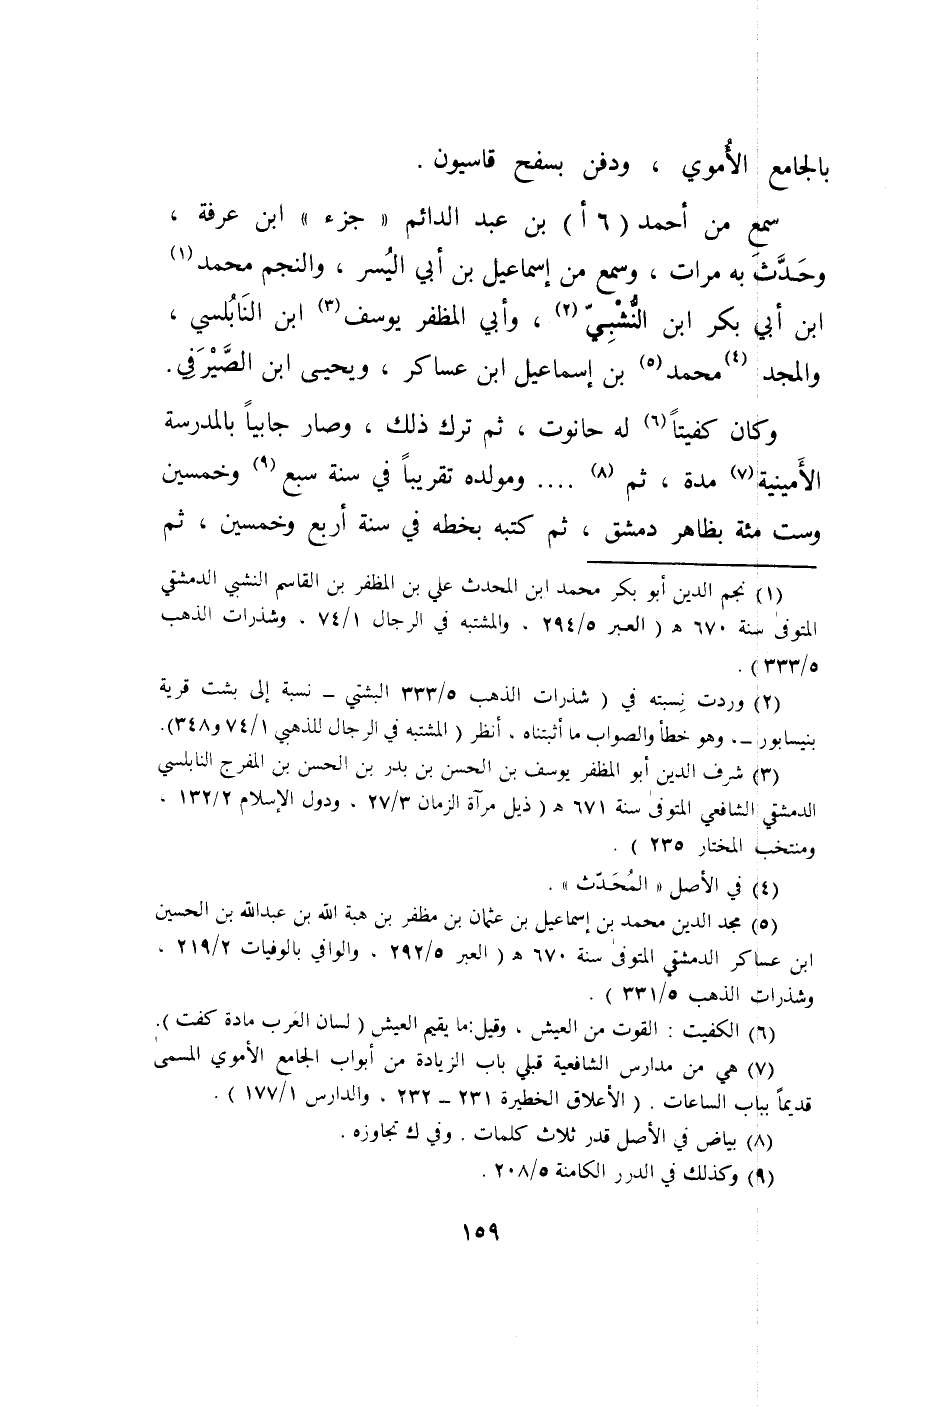 بالجامع الأُموي ، ودفن بسفح قاسيون .
سمع من أحمد ( ٦ أ ) بن عبد الدائم « جزء » ابن عرفة ،
وحَدَّثَ به مرات ، وسمع من إسماعيل بن أبي اليُسر ، والنجم محمد(١)
ابن أبي بكر ابن النُّشْبِيّ(٢) ، وأبي المظفر يوسف(٣) ابن النَابُلسي ،
والمجد (٤)محمد(٥) بن إسماعيل ابن عساكر ، ويحيى ابن الصَّيْرَفي .
وكان كفيتاً(٦) له حانوت ، ثم ترك ذلك ، وصار جابياً بالمدرسة
الأَمينية(٧) مدة ، ثم (٨) .... ومولده تقريباً في سنة سبع (٩) وخمسين
وست مئة بظاهر دمشق ، ثم كتبه بخطه في سنة أربع وخمسين ، ثم
(١) نجم الدين أبو بكر محمد ابن المحدث علي بن المظفر بن القاسم النشبي الدمشقي
المتوفى سنة ٦٧٠ هـ ( العبر ٢٩٤/٥ . والمشتبه في الرجال ٧٤/١ . وشذرات الذهب
٣٣٣/٥ ) .
(٢) وردت نِسبته في ( شذرات الذهب ٣٣٣/٥ البشتي ــ نسبة إلى بشت قرية
بنيسابور ــ . وهو خطأ والصواب ما أثبتناه . أنظر ( المشتبه في الرجال للذهبي ٧٤/١ و٣٤٨).
(٣) شرف الدين أبو المظفر يوسف بن الحسن بن بدر بن الحسن بن المفرج النابلسي
الدمشقي الشافعي المتوفى سنة ٦٧١ هـ ( ذيل مرآة الزمان ٢٧/٣ . ودول الإسلام ١٣٢/٢ .
ومنتخب المختار ٢٣٥ ) .
(٤) في الأصل « المُحَدّث » .
(٥) مجد الدين محمد بن إسماعيل بن عثمان بن مظفر بن هبة الله بن عبدالله بن الحسين
ابن عساكر الدمشقي المتوفى سنة ٦٧٠ هـ ( العبر ٢٩٢/٥ . والوافي بالوفيات ٢١٩/٢ .
وشذرات الذهب ٣٣١/٥ ) .
(٦) الكفيت : القوت من العيش ، وقيل:ما يقيم العيش ( لسان العَرب مادة كفت ).
(٧) هي من مدارس الشافعية قبلي باب الزيادة من أبواب الجامع الأموي المسمى
قديماً بباب الساعات . ( الأعلاق الخطيرة ٢٣١ ــ ٢٣٢ . والدارس ١٧٧/١ ) .
(٨) بياض في الأصل قدر ثلاث كلمات . وفي ك تجاوزه .
(٩) وكذلك في الدرر الكامنة ٢٠٨/٥ .
١٥٩